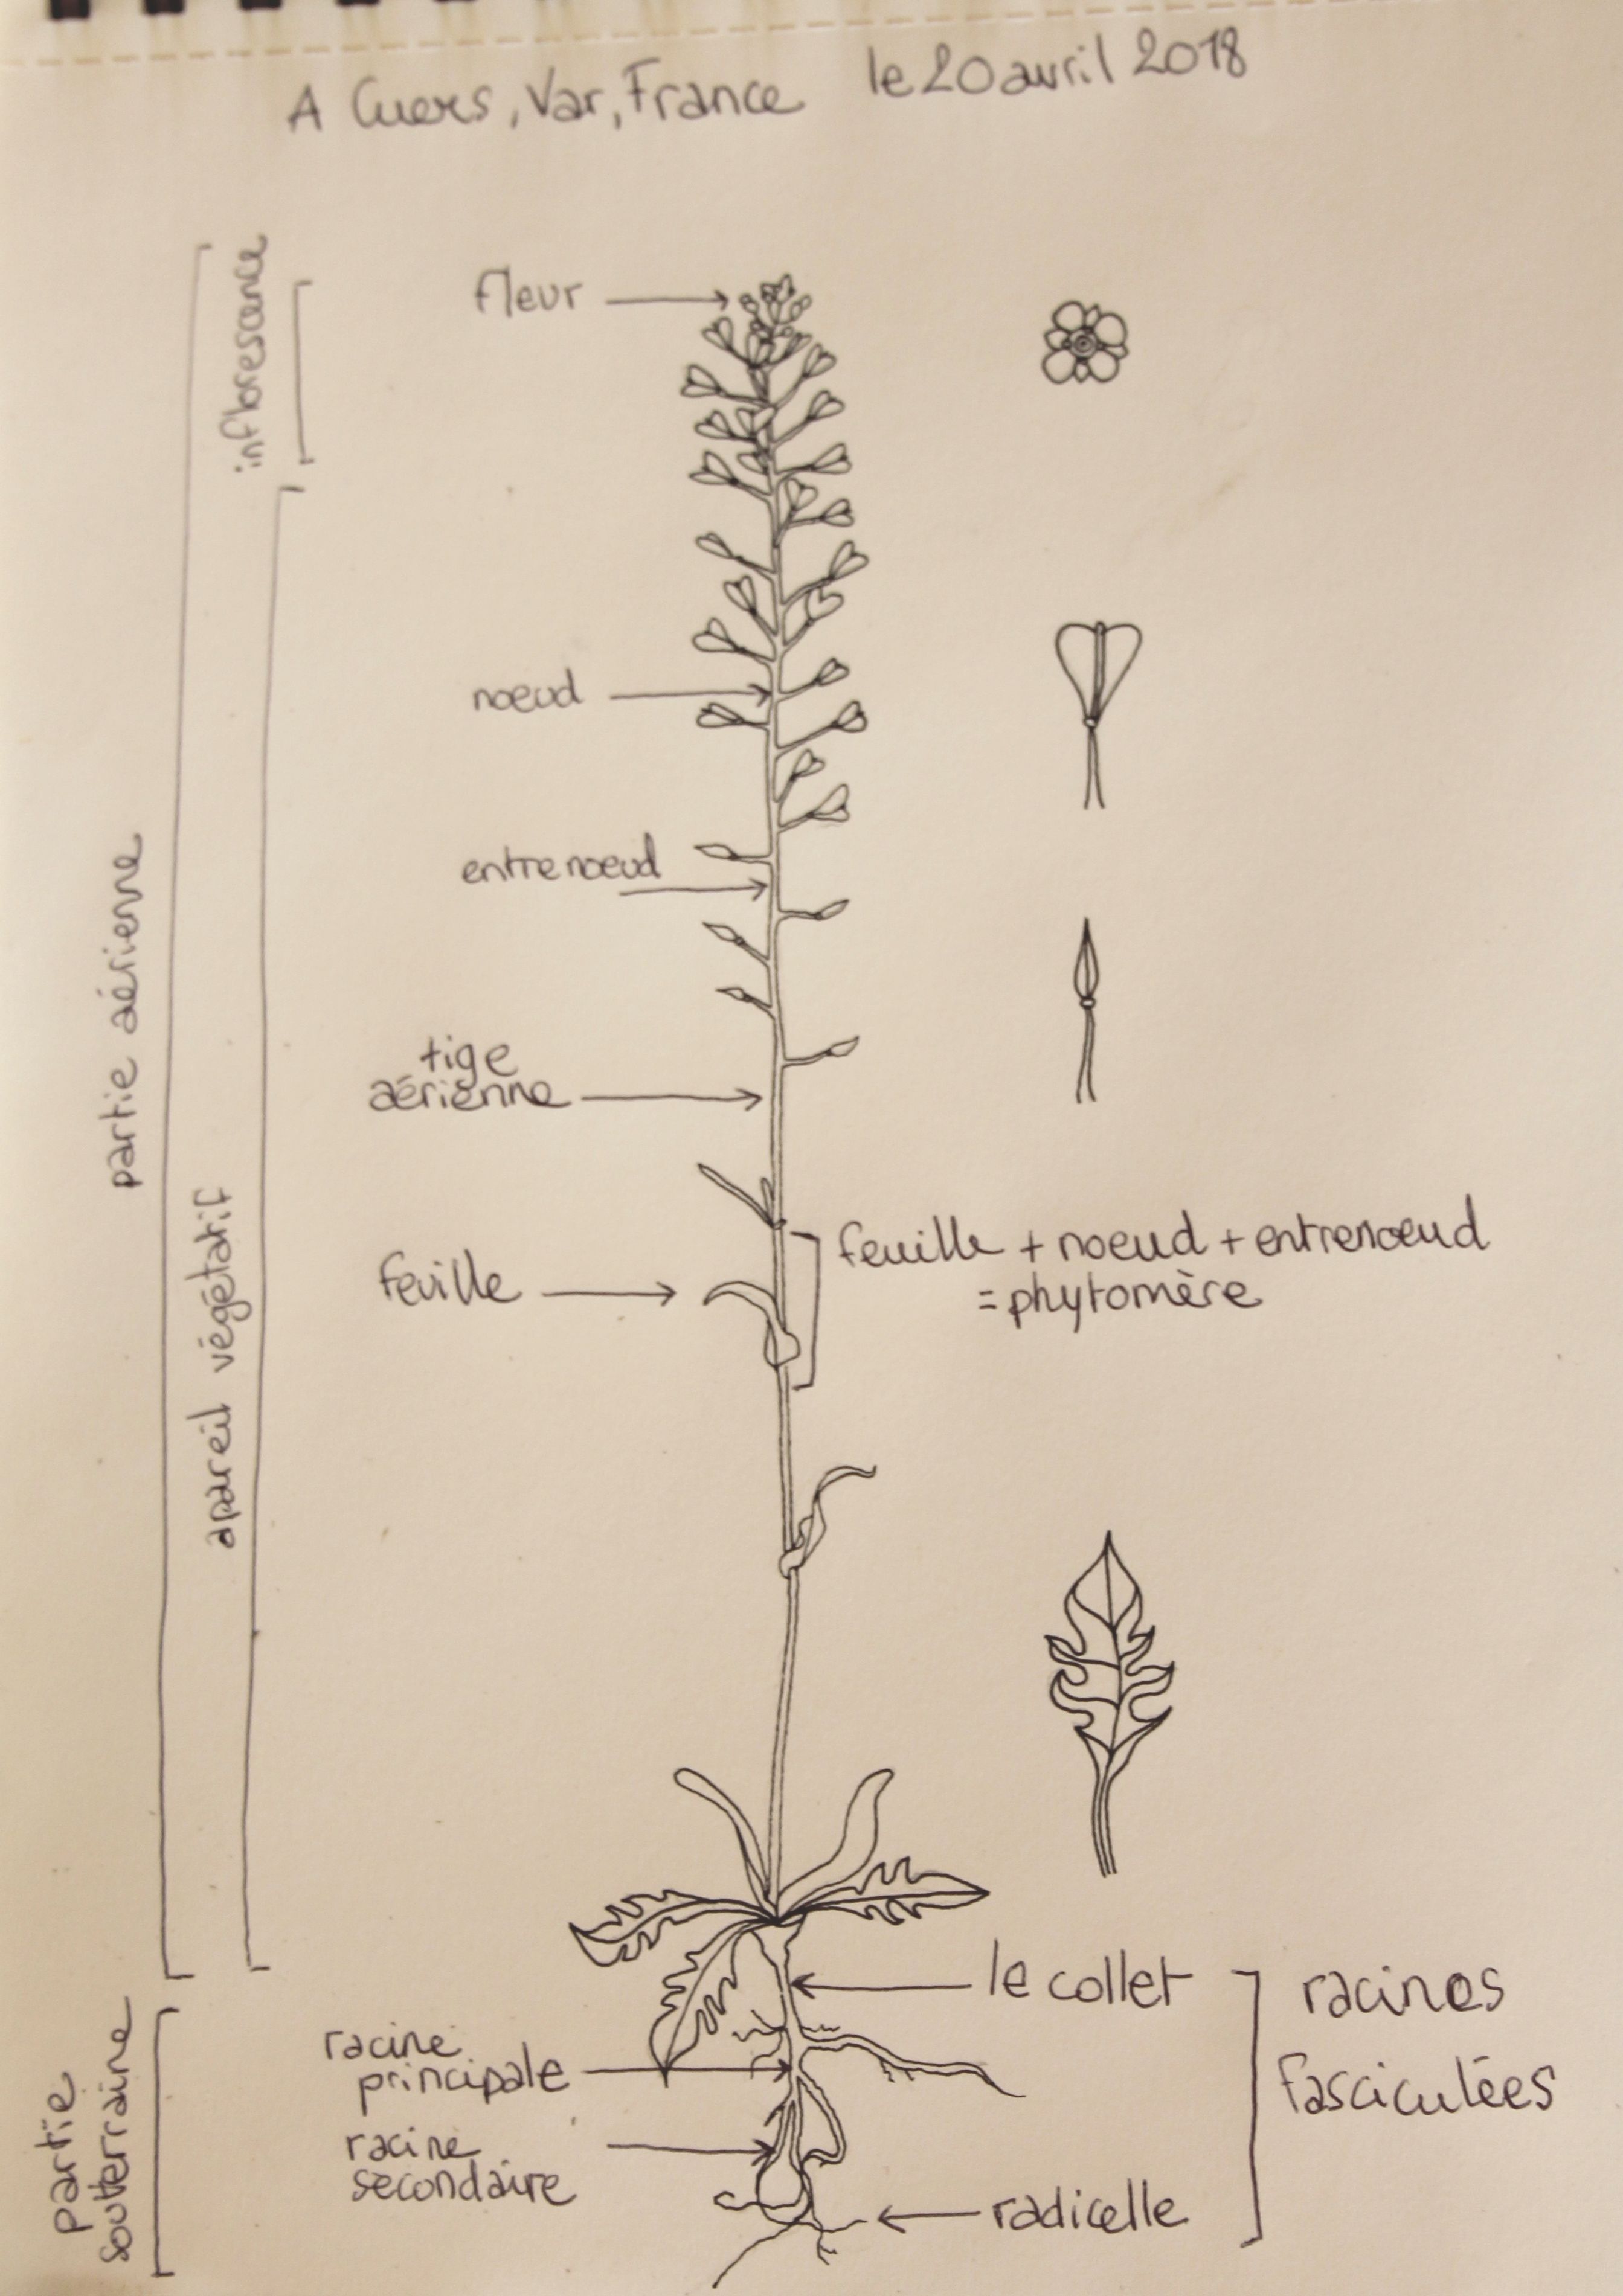 A Cuers, Var, France le 20 avril 2018
inflorescence
fleur
noeud
entrenoeud
partie aérienne
tige
aérienne
apareil végétatif
feuille
feuille + noeud + entrenoeud
= phytomère
le collet
racines
fasciculées
racine
principale
racine
secondaire
radicelle
partie
souterraine